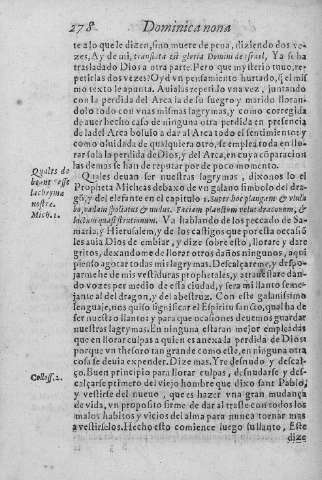 278
Dominica nona
te a lo que le dizen, sino muere de pena, diziendo dos ve-
zes, Ay de mi, translata est gloria Domini de Israel, Ya se ha
trasladado Dios a otra parte. Pero que mysterio tuuo, re-
petirlas dos vezes? Oyd vn pensamiento hurtado, q̃ el mis
mo texto le apunta. Auialas repetido vna vez, juntando
con la perdida del Arca la de su suegro y marido lloran-
dolo todo con vnas mismas lagrymas, y como corregida
de auer hecho caso de ninguna otra perdida en presencia
de la del Arca boluio a dar al Arca todo el sentimiento, y
como oluidada de qualquiera otro, se emplea toda en llo
rar sola la perdida de Dios, y del Arca, en cuya cõparacion
las demas se han de reputar por de poco momento.
Quales deuan ser nuestras lagrymas, dixonos lo el
Propheta Micheas debaxo de vn galano simbolo del dra-
gõ, y del elefante en el capitulo 1. Super hoc plangam & vlula
bo, vadam spoliatus & nudus. Faciam planctum velut draconum, &
luctum quasi strutionum. Va hablando de los peccados de Sa-
maria, y Hierusalem, y de los castigos que por esta occasiõ
les auia Dios de embiar, y dize sobre esto, llorare y dare
gritos, dexandome de llorar otros daños ningunos, aqui
pienso agotar todas mis lagrymas. Descalçareme, y despo-
jarmehe de mis vestiduras prophetales, y atrauessare dan-
do vozes por medio de esta ciudad, y sera mi llanto seme-
jante al del dragon, y del abestruz. Con este galanissimo
lenguaje, nos quiso significar el Espiritu sancto, qual ha de
ser nuestro llanto y para que ocasiones deuemos guardar
nuestras lagrymas. En ninguna estaran mejor empleadas
que en llorar culpas a quien es anexa la perdida de Dios
porque vn thesoro tan grande como este, en ninguna otra
cosa se deuia expender. Dize mas. Yre desnudo y descal-
ço. Buen principio para llorar culpas, desnudarse y des-
calçarse primero del viejo hombre que dixo sant Pablo,
y vestirse del nueuo, que es hazer vna gran mudança
de vida, vn proposito firme de dar al traste con todos los
malos habitos y vicios del alma para nunca tornar mas
a vestirselos. Hecho esto comience luego su llanto, Este
dize
Quales de
beant esse
lachrymæ
nostræ.
Mich. 1.
Coloss. 2.